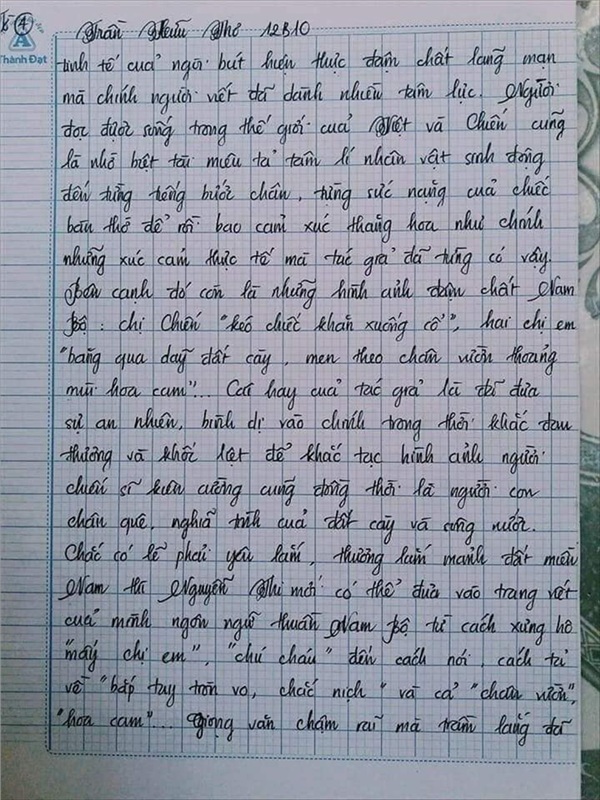 4
Thành Đạt
Trần Hữu Nhơ 12B10
tinh tế của ngòi bút hiện thực đậm chất lãng mạn
mà chính người viết đã dành nhiều tâm lực. Người
đọc được sống trong thế giới của Việt và Chiến cũng
là nhờ biệt tài miêu tả tâm lí nhân vật sinh động
đến từng tiếng bước chân, từng sức nặng của chiếc
bàn thờ để rồi bao cảm xúc thăng hoa như chính
những xúc cảm thực tế mà tác giả đã từng có vậy.
Bên cạnh đó còn là những hình ảnh đậm chất Nam
Bộ: chị Chiến "kéo chiếc khăn xuống cổ", hai chị em
"băng qua dãy đất cày, men theo chân vườn thoảng
mùi hoa cam"... Cái hay của tác giả là đã đưa
sự an nhiên, bình dị vào chính trong thời khắc đau
thương và khốc liệt để khắc tạc hình ảnh người
chiến sĩ kiên cường cũng đồng thời là người con
chân quê, nghĩa tình của đất cày và cũng nước.
Chắc có lẽ phải yêu lắm, thương lắm mảnh đất miền
Nam thì Nguyễn Thi mới có thể đưa vào trang viết
của mình ngôn ngữ thuần Nam Bộ từ cách xưng hô
"mấy chị em", "chú cháu" đến cách nói, cách tả
về "bắp tay tròn vo, chắc nịch" và cả "chân vườn",
"hoa cam"... Giọng văn chậm rãi mà trầm lắng đã